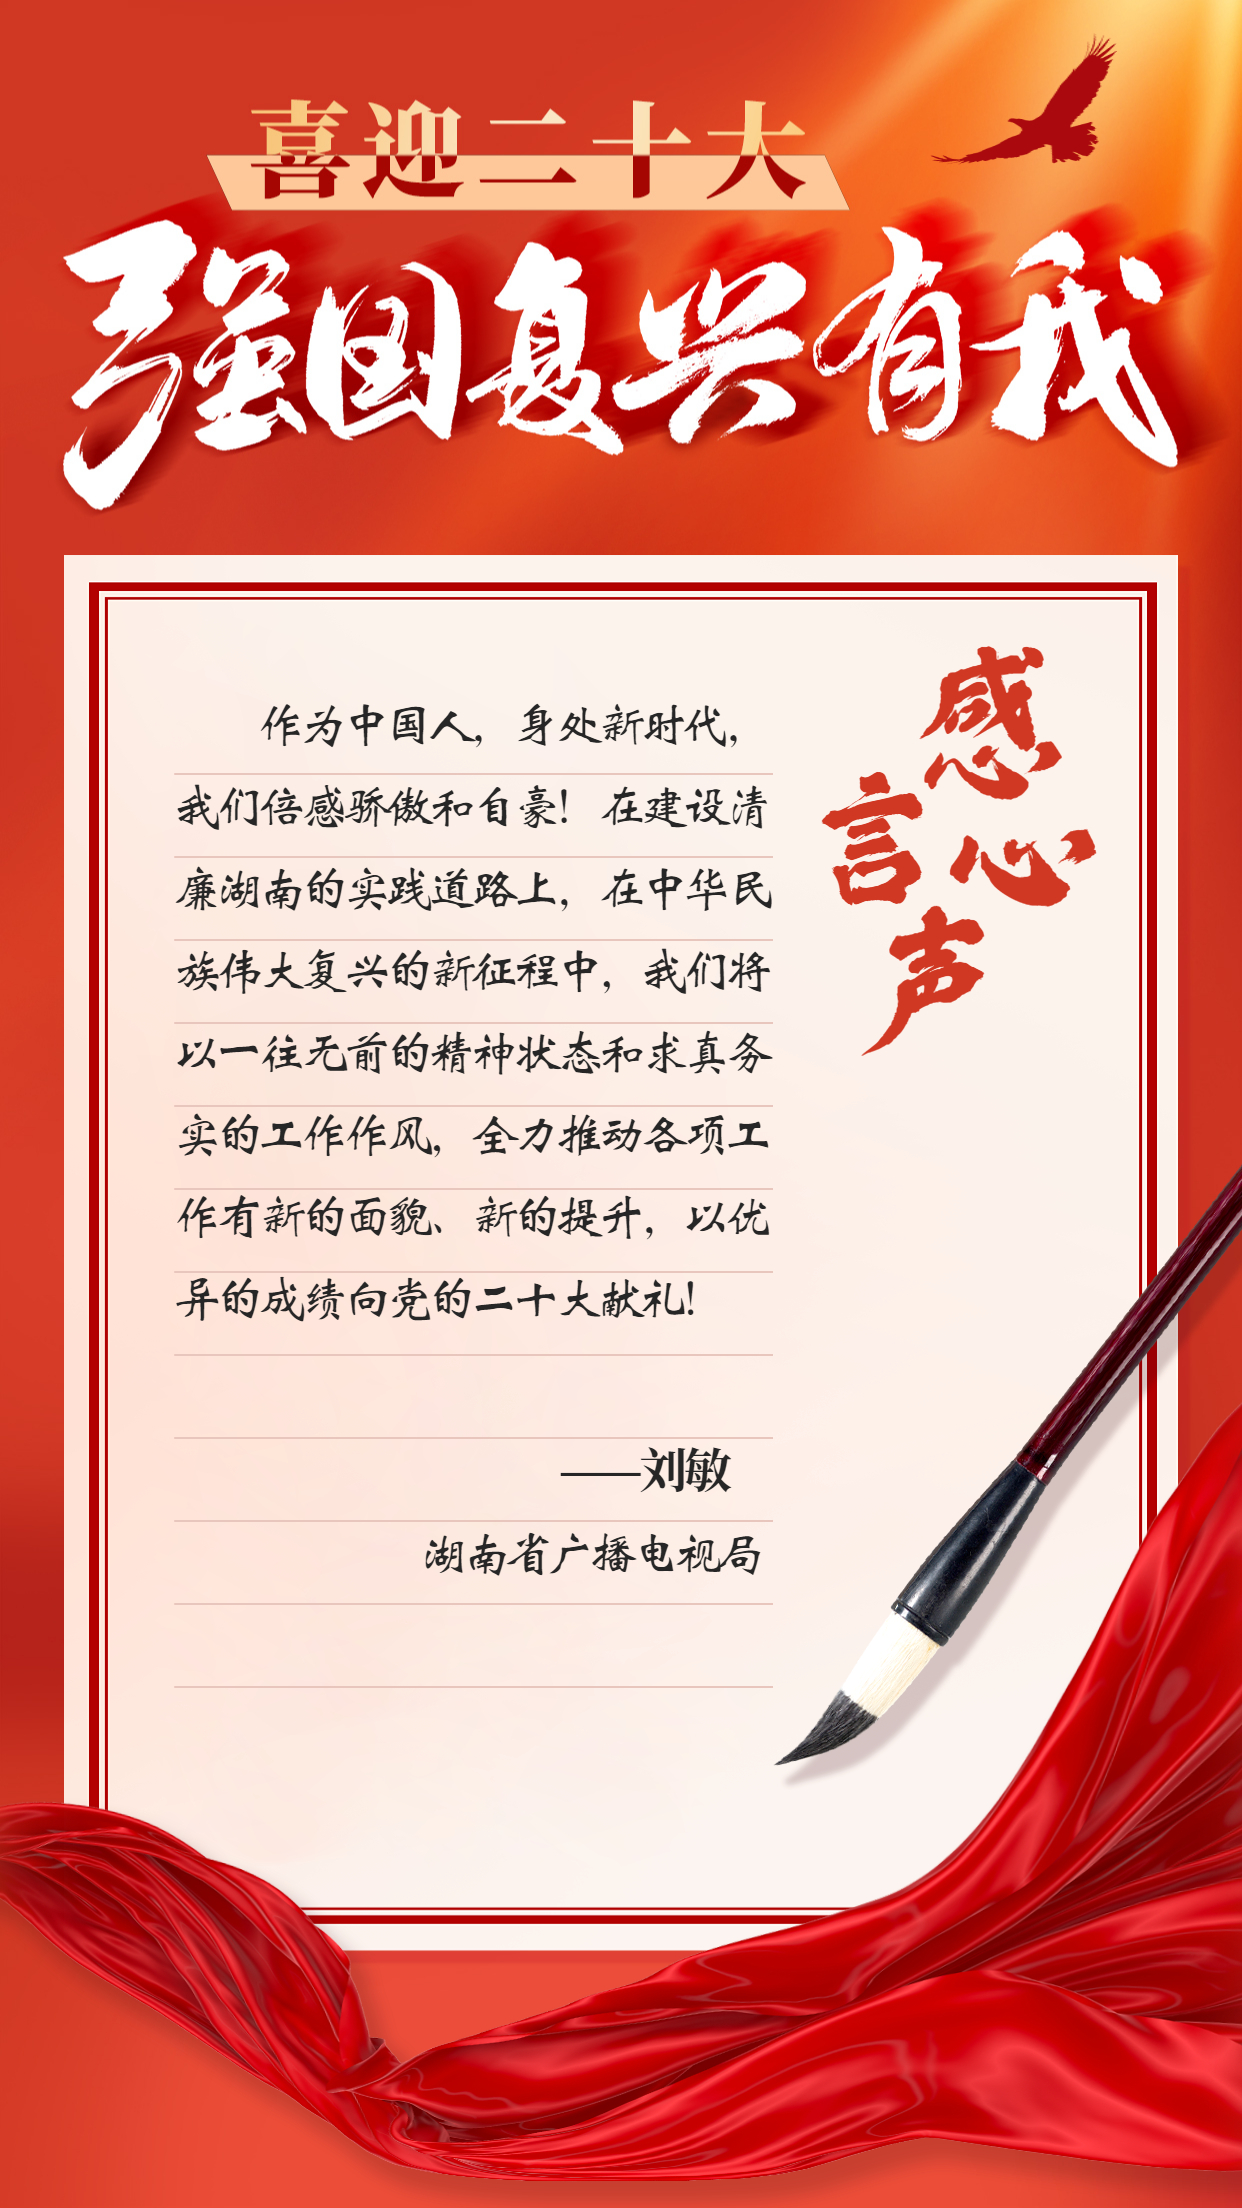 喜迎二十大
强国复兴有我
感言心声
作为中国人，身处新时代，
我们倍感骄傲和自豪！在建设清
廉湖南的实践道路上，在中华民
族伟大复兴的新征程中，我们将
以一往无前的精神状态和求真务
实的工作作风，全力推动各项工
作有新的面貌、新的提升，以优
异的成绩向党的二十大献礼！
——刘敏
湖南省广播电视局